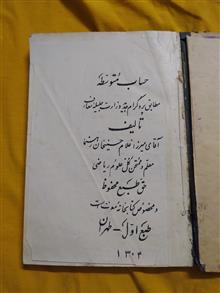 حساب متوسطه
مطابق پروگرام جدید وزارت جلیله معارف
تألیف
آقای میرزا غلامحسینخان رهنما
معلم و متفنن کل علوم ریاضی
حق طبع محفوظ
و مخصوص کتابخانه معرفت است
طبع اول - طهران
۱۳۰۴